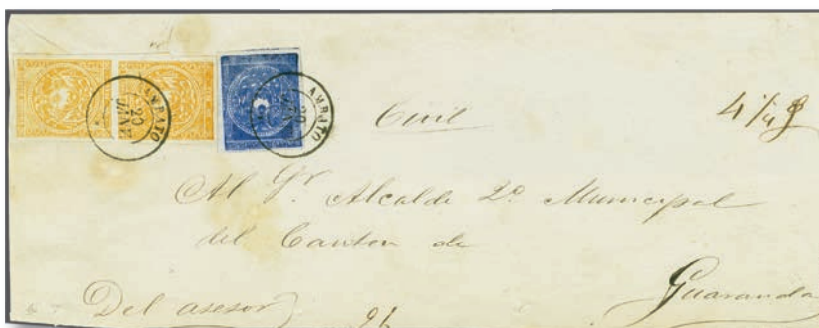 AMBATO
20
JUN
AMBATO
20
JUN
Civil
4 1/4
Al Sr. Alcalde 2º Municipal
del Canton de
Guaranda
Del asesor